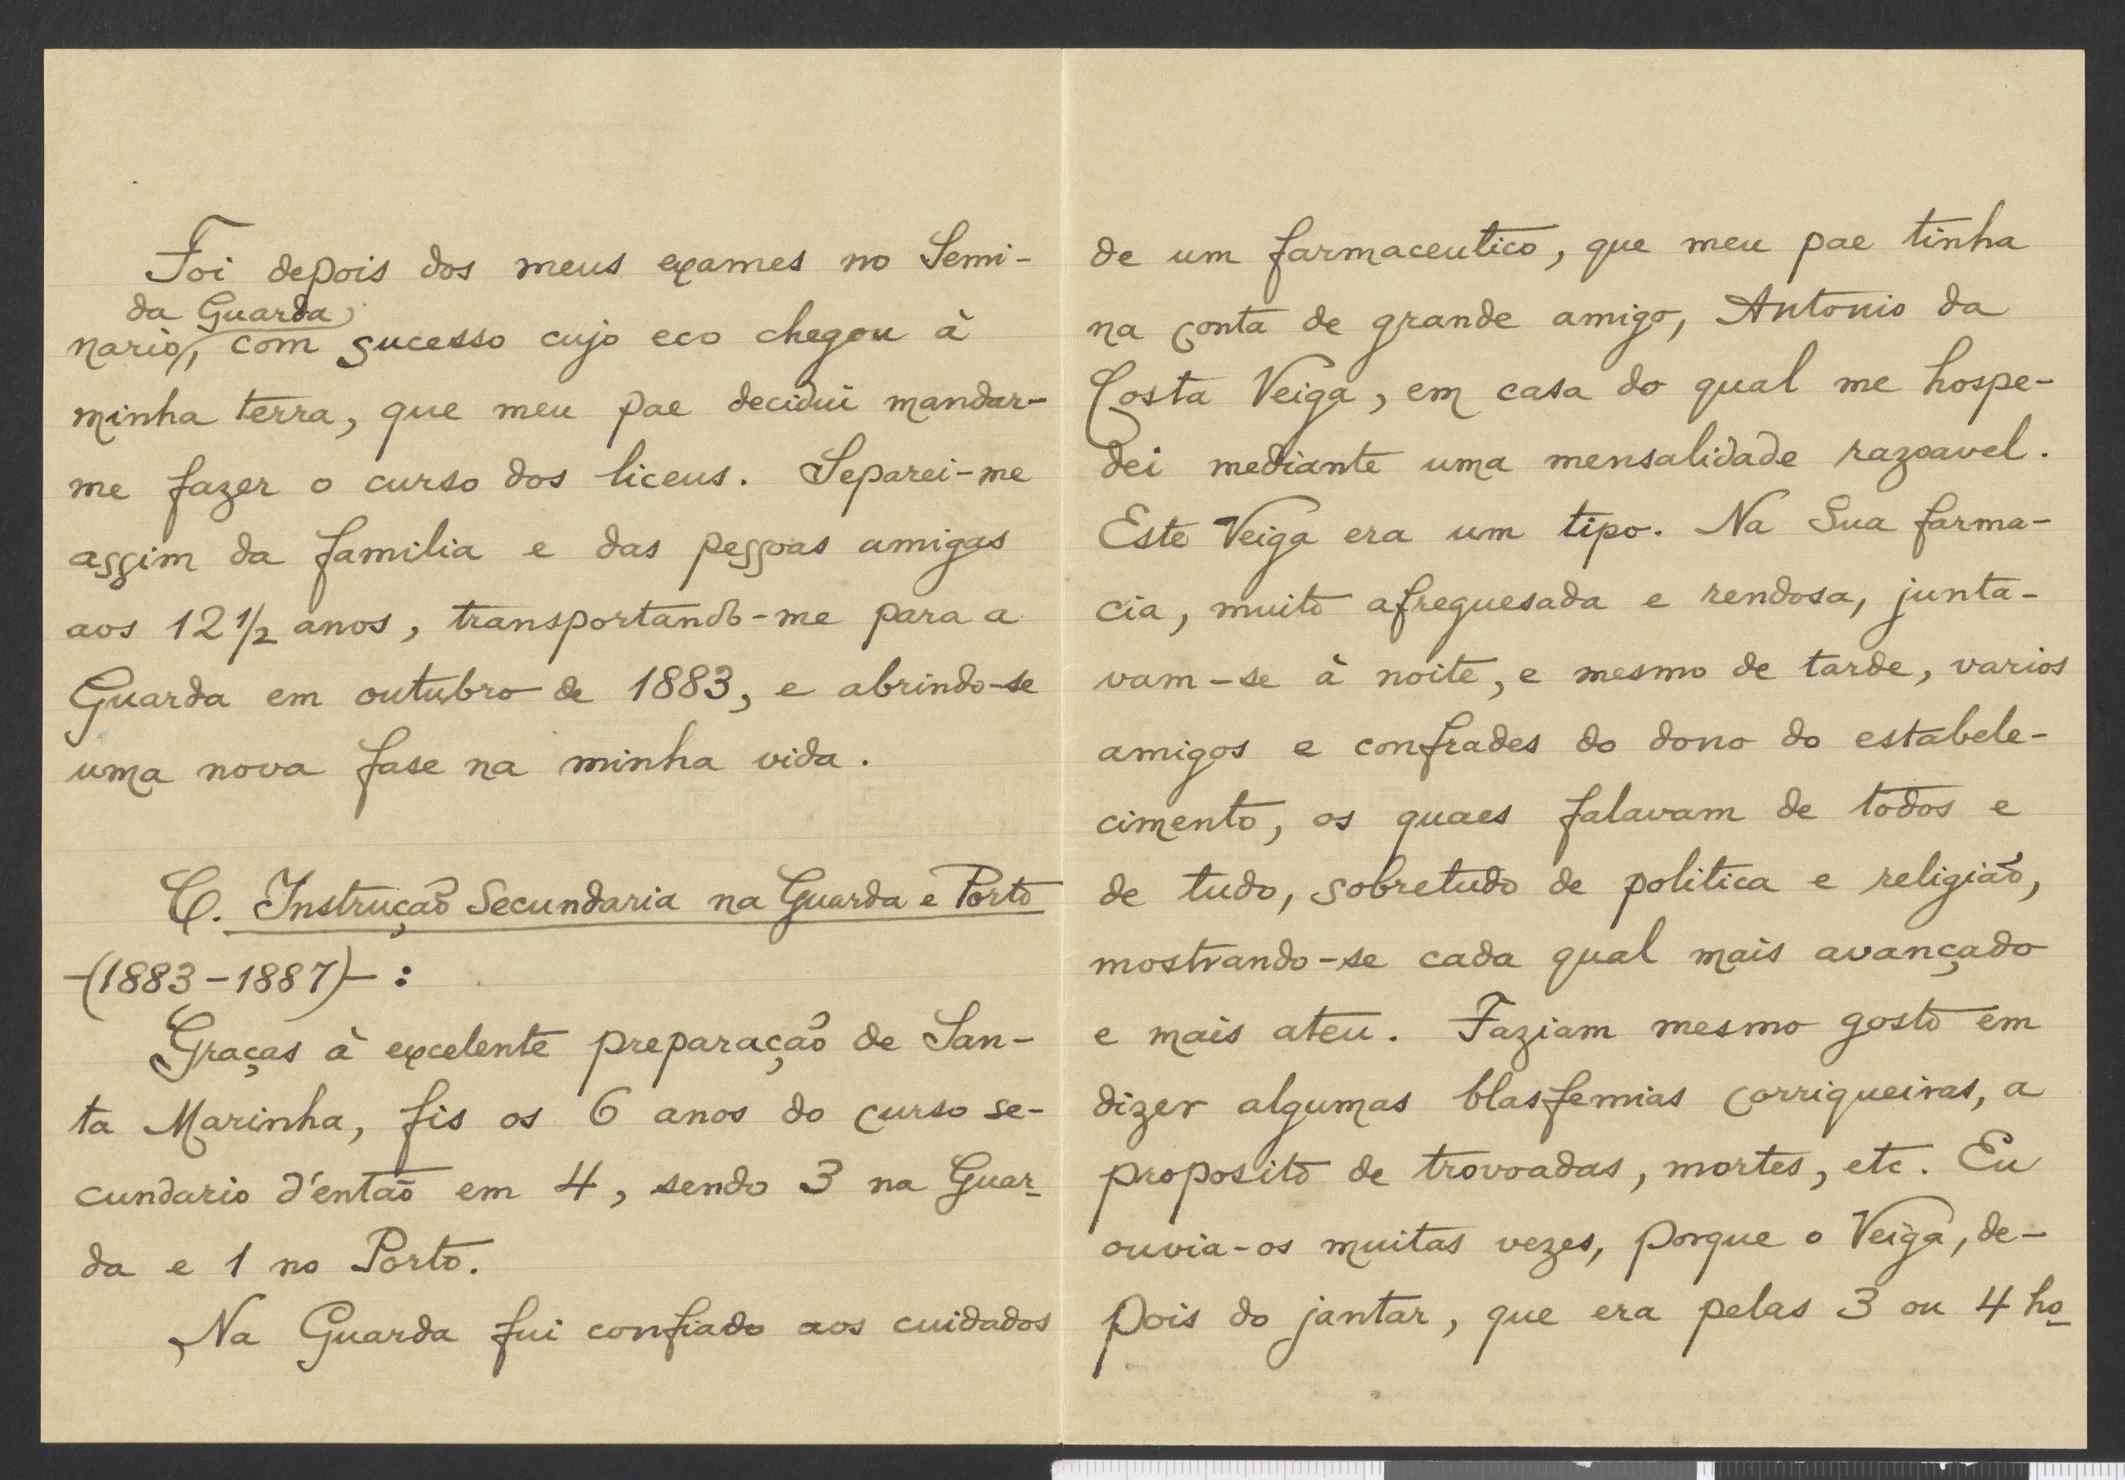 Foi depois dos meus exames no Semi-
da Guarda
nario, com sucesso cujo eco chegou à
minha terra, que meu pae decidui mandar-
me fazer o curso dos liceus. Separei-me
assim da familia e das pessoas amigas
aos 12 1/2 anos, transportando-me para a
Guarda em outubro de 1883, e abrindo-se
uma nova fase na minha vida.
C. Instrução Secundaria na Guarda e Porto
-(1883-1887)- :
Graças à excelente preparação de San-
ta Marinha, fis os 6 anos do curso se-
cundario d'então em 4, sendo 3 na Guar-
da e 1 no Porto.
Na Guarda fui confiado aos cuidados
de um farmaceutico, que meu pae tinha
na conta de grande amigo, Antonio da
Costa Veiga, em casa do qual me hospe-
dei mediante uma mensalidade razoavel.
Este Veiga era um tipo. Na Sua farma-
cia, muito afreguesada e rendosa, junta-
vam-se à noite, e mesmo de tarde, varios
amigos e confrades do dono do estabele-
cimento, os quaes falavam de todos e
de tudo, sobretudo de politica e religião,
mostrando-se cada qual mais avançado
e mais ateu. Faziam mesmo gosto em
dizer algumas blasfemias corriqueiras, a
proposito de trovoadas, mortes, etc. Eu
ouvia-os muitas vezes, porque o Veiga, de-
pois do jantar, que era pelas 3 ou 4 ho-